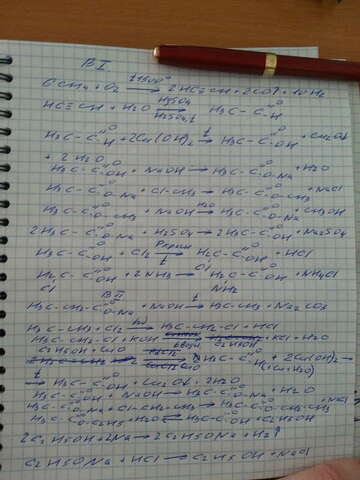 В I
6CH4 + O2 —t1500°→ 2HC≡CH + 2CO↑ + 10H2
HC≡CH + H2O —H2SO4→ H3C–C=O–H
H3C–C=O–H + 2Cu(OH)2 —t→ H3C–C=O–OH + Cu2O↓
+ 2H2O
H3C–C=O–OH + NaOH → H3C–C=O–O–Na + H2O
H3C–C=O–O–Na + Cl–CH3 → H3C–C=O–O–CH3 + NaCl
H3C–C=O–O–CH3 + NaOH —H2O→ H3C–C=O–O–Na + CH3OH
2H3C–C=O–O–Na + H2SO4 → 2H3C–C=O–OH + Na2SO4
H3C–C=O–OH + Cl2 —Pкрасн→ H2C–C=O–OH + HCl
Cl
H2C–C=O–OH + 2NH3 → H2C–C=O–OH + NH4Cl
Cl NH2
В II
H3C–CH2–C=O–O–Na + NaOH —t→ H3C–CH3 + Na2CO3
H3C–CH3 + Cl2 —hν→ H3C–CH2–Cl + HCl
H3C–CH2–Cl + KOH + KCl + H2O
C2H5OH + CuO + 2Cu(OH)2 →
(Cu + H2O)
—t→ H3C–C=O–OH + Cu2O↓ + 2H2O
H3C–C=O–OH + NaOH → H3C–C=O–O–Na + H2O
H3C–C=O–O–Na + Cl–CH2–CH3 → H3C–C=O–O–CH2–CH3 + NaCl
H3C–C=O–O–C2H5 + H2O ⇄ H3C–C=O–OH + C2H5OH
2C2H5OH + 2Na → 2C2H5ONa + H2↑
C2H5ONa + HCl → C2H5OH + NaCl